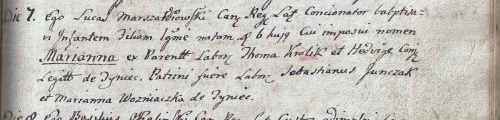 Die 7. Ego Lucas Marszałkowski Can. Reg. Lat. Concionator baptiza-
vi Infantem Filiam natam 6 hujus Cui imposui nomen
Marianna ex Parentt Labor. Thoma Krolik et Hedvige Con.
Legitt de Tyniec. Patrini fuere Labor. Sebastianus Junczak
et Marianna Wozniaczka de Tyniec.
Ego Can. Reg. Lat.